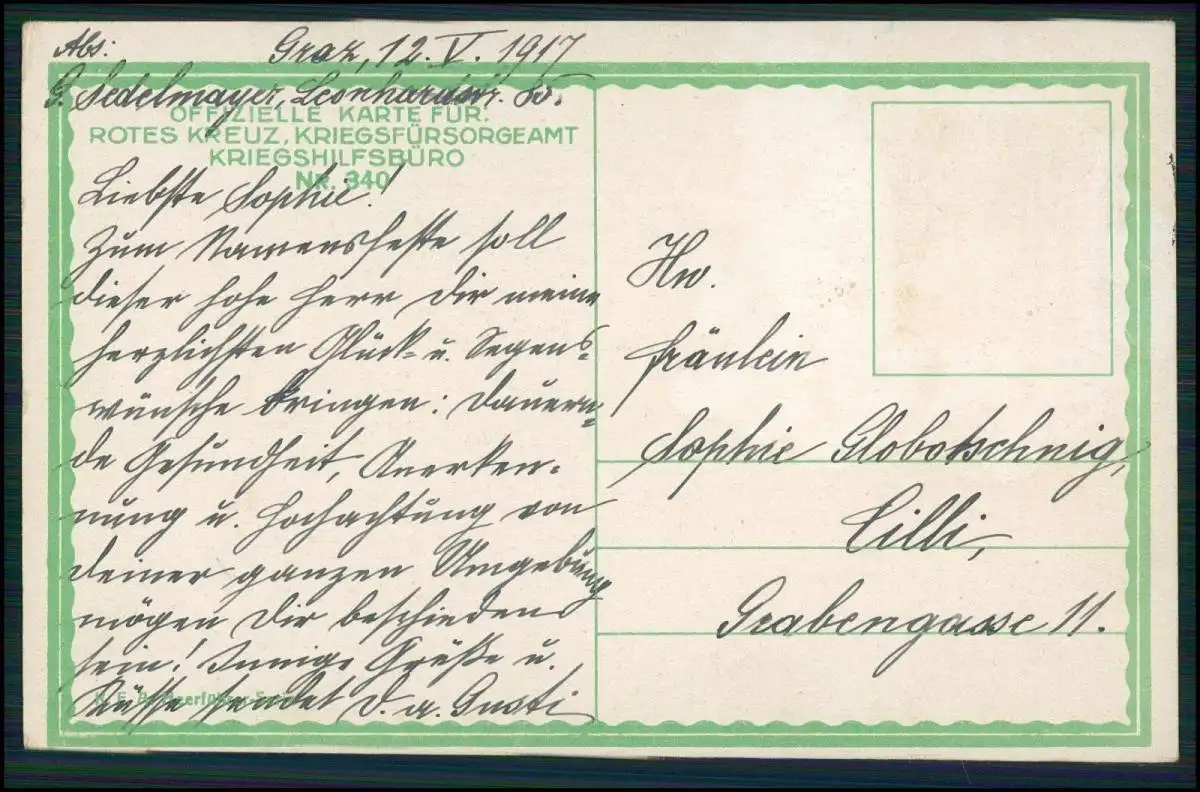 Abs: Graz, 12. V. 1917
G. Sedelmayer, Leonhardstr.
OFFIZIELLE KARTE FÜR:
ROTES KREUZ, KRIEGSFÜRSORGEAMT
KRIEGSHILFSBÜRO
NR. 340
Liebste Sophie!
Zum Namensfeste soll
dieser hohe Herr Dir meine
herzlichsten Glück- u. Segens-
wünsche bringen: Dauern-
de Gesundheit, Anerken-
nung u. Hochachtung von
deiner ganzen Umgebung
mögen Dir beschieden
sein! Innige Grüße u.
Küsse sendet D. a. Gusti
Hw.
Fräulein
Sophie Globotschnig,
Cilli,
Grabengasse 11.